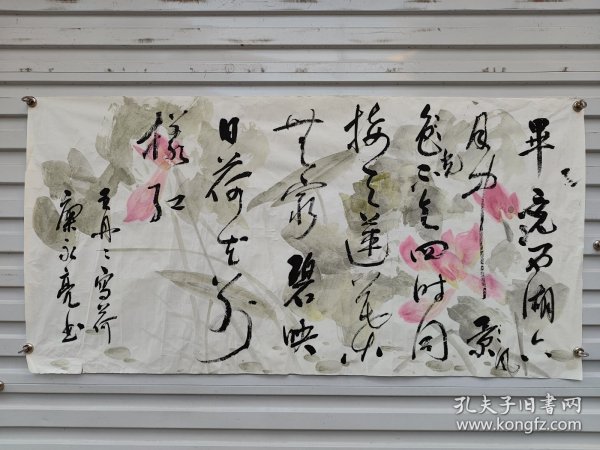 畢竟西湖六
月中景风
色光不与四时同
接天蓮葉
無窮碧映
日荷花别
樣红
王丹丹寫荷
康永亮书
孔夫子旧书网
www.kongfz.com